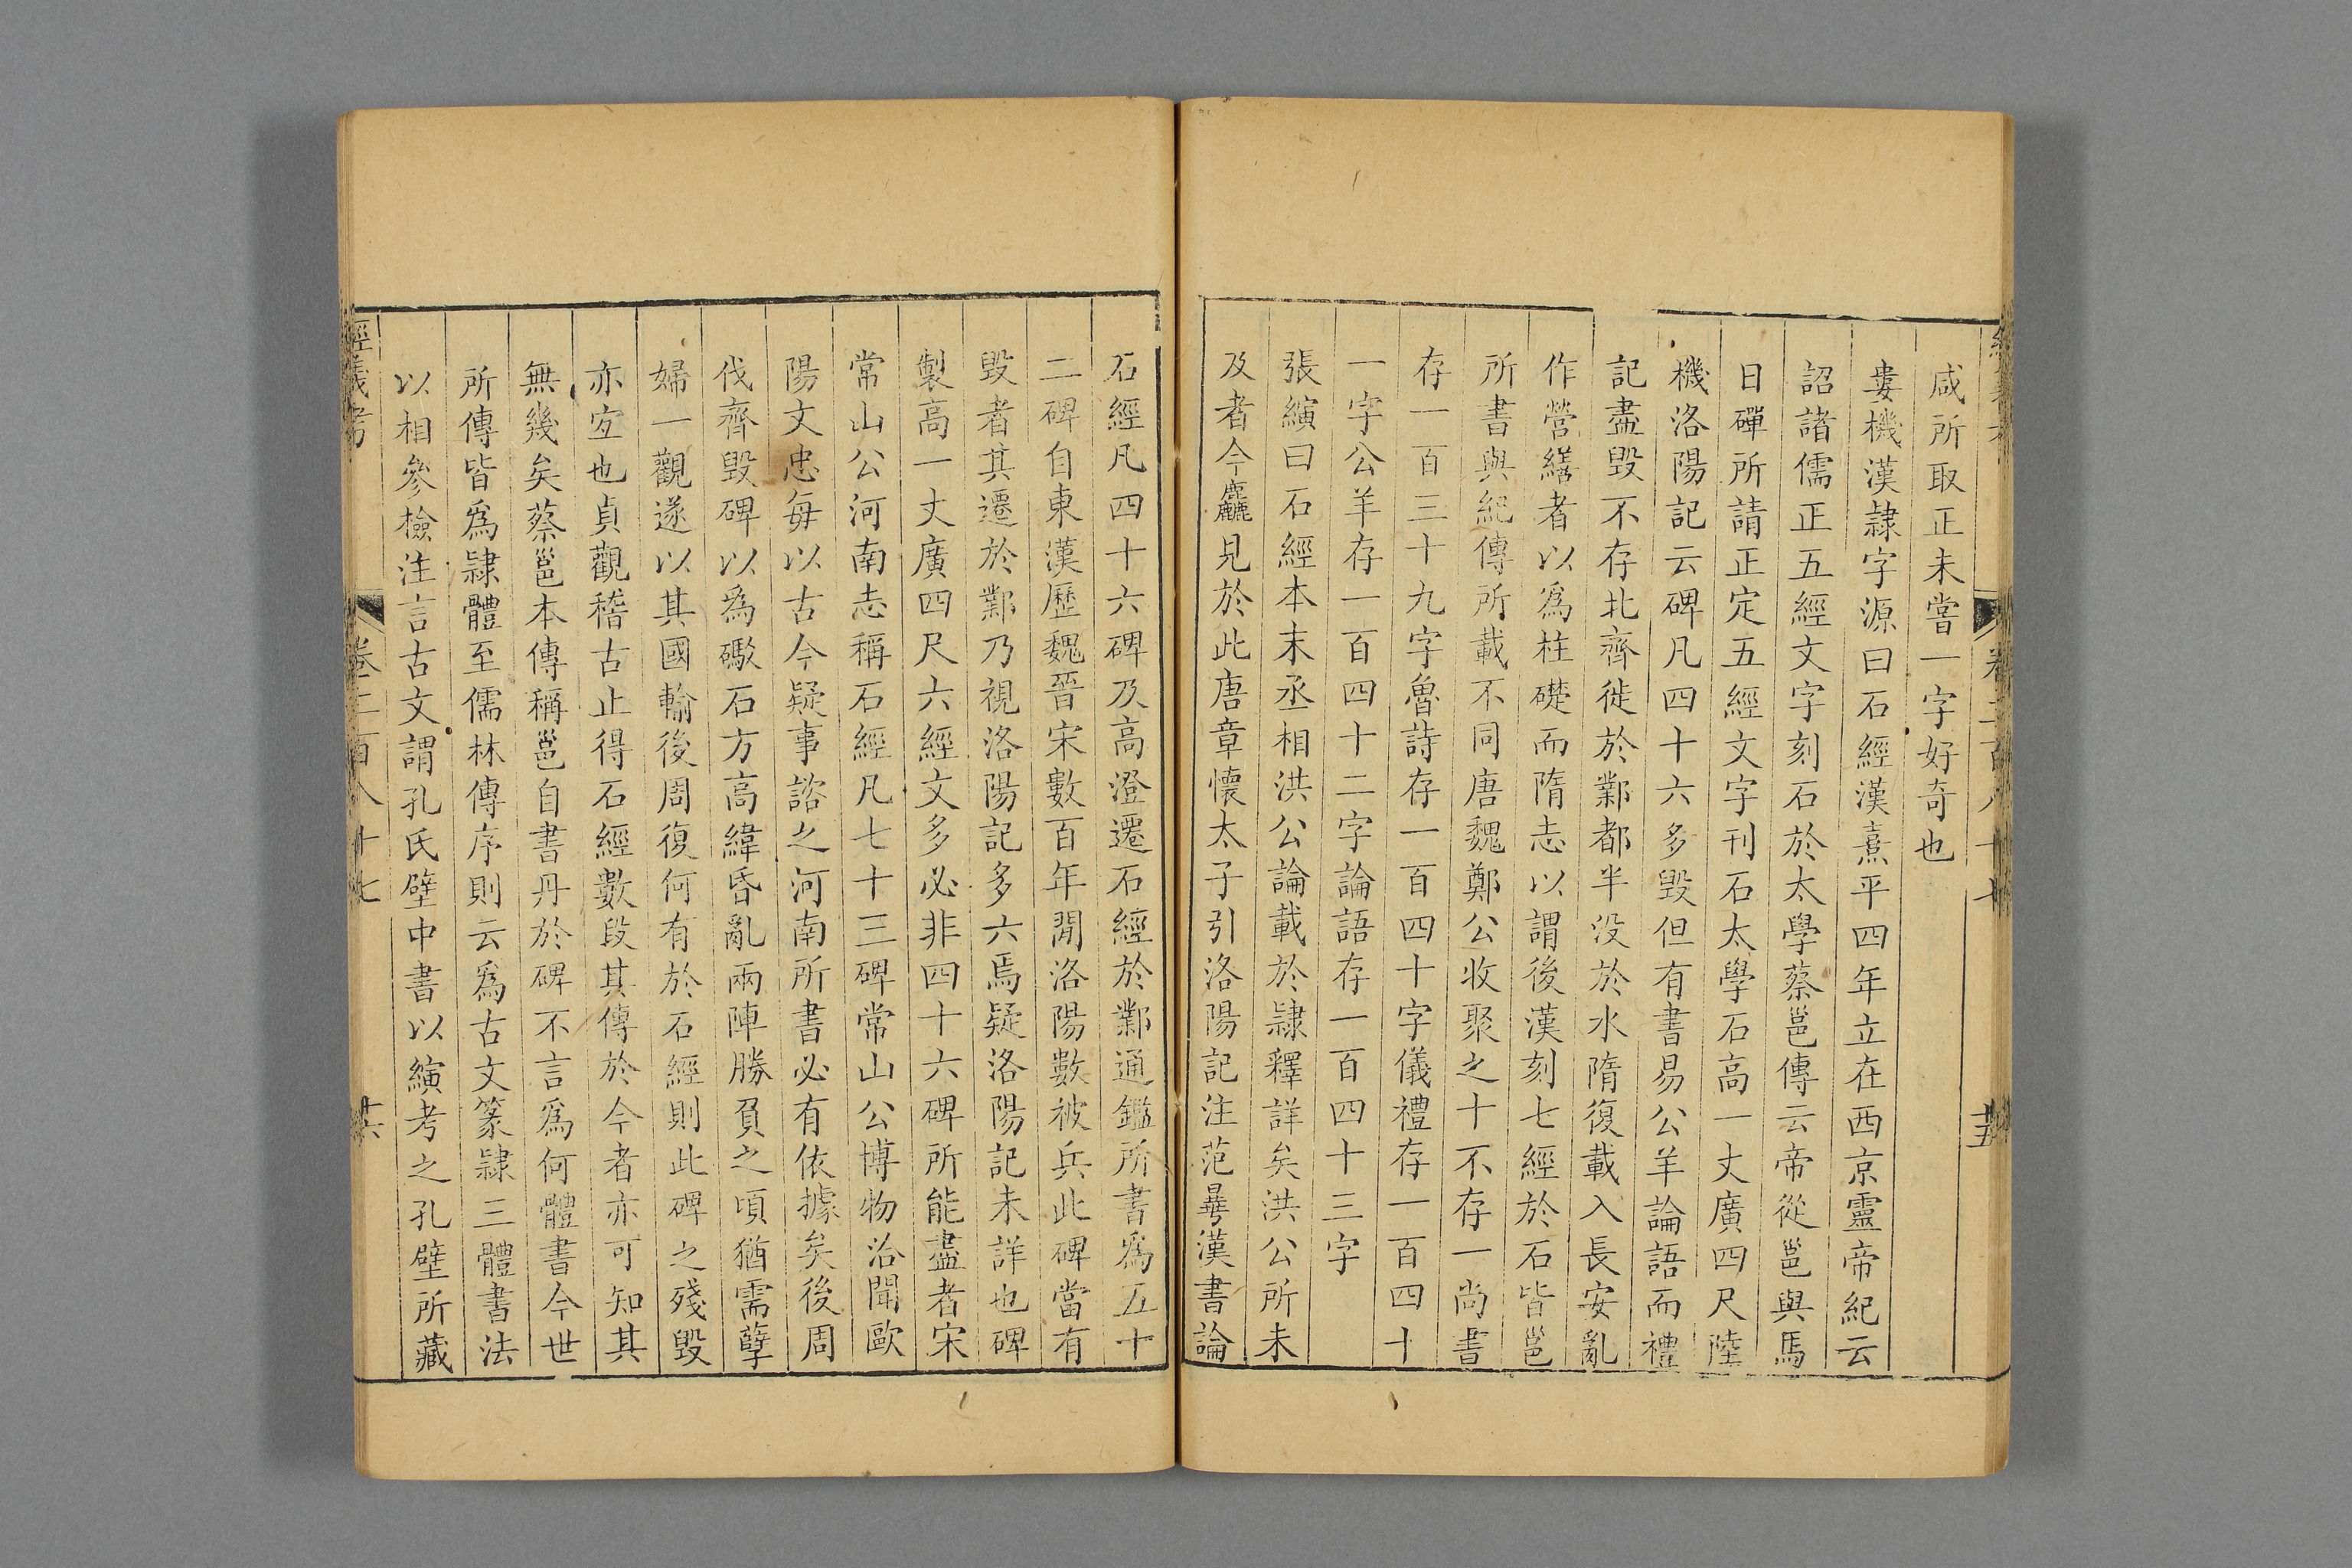 咸所取正未嘗一字好奇也
婁機漢隷字源曰石經漢熹平四年立在西京靈帝紀云
詔諸儒正五經文字刻石於太學蔡邕傳云帝從邕與馬
日磾所請正定五經文字刊石太學石高一丈廣四尺陸
機洛陽記云碑凡四十六多毁但有書易公羊論語而禮
記盡毁不存北齊徙於鄴都半没於水隋復載入長安亂
作營繕者以爲柱礎而隋志以謂後漢刻七經於石皆邕
所書與紀傳所載不同唐魏鄭公收聚之十不存一尚書
存一百三十九字魯詩存一百四十字儀禮存一百四十
一字公羊存一百四十二字論語存一百四十三字
張縯曰石經本末丞相洪公論載於隷釋詳矣洪公所未
及者今麤見於此唐章懷太子引洛陽記注范曅漢書論
石經凡四十六碑及高澄遷石經於鄴通鑑所書爲五十
二碑自東漢歷魏晉宋數百年閒洛陽數被兵此碑當有
毁者其遷於鄴乃視洛陽記多六焉疑洛陽記未詳也碑
製高一丈廣四尺六經文多必非四十六碑所能盡者宋
常山公河南志稱石經凡七十三碑常山公博物洽聞歐
陽文忠每以古今疑事諮之河南所書必有依據矣後周
伐齊毁碑以爲礮石方高緯昏亂兩陣勝負之頃猶需孽
婦一觀遂以其國輸後周復何有於石經則此碑之殘毁
亦宐也貞觀稽古止得石經數段其傳於今者亦可知其
無幾矣蔡邕本傳稱邕自書丹於碑不言爲何體書今世
所傳皆爲隷體至儒林傳序則云爲古文篆隷三體書法
以相參檢注言古文謂孔氏壁中書以縯考之孔壁所藏
經義考
卷二百八十七
十六